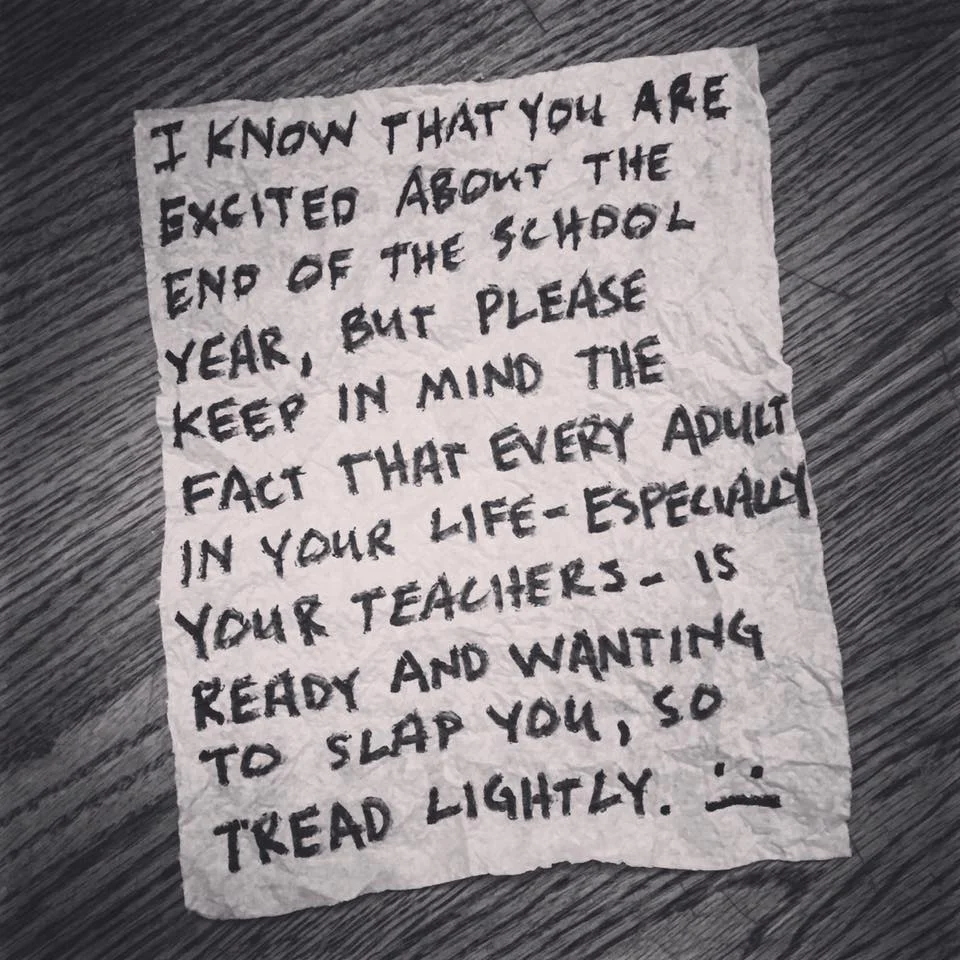 I KNOW THAT YOU ARE
EXCITED ABOUT THE
END OF THE SCHOOL
YEAR, BUT PLEASE
KEEP IN MIND THE
FACT THAT EVERY ADULT
IN YOUR LIFE - ESPECIALLY
YOUR TEACHERS - IS
READY AND WANTING
TO SLAP YOU, SO
TREAD LIGHTLY.